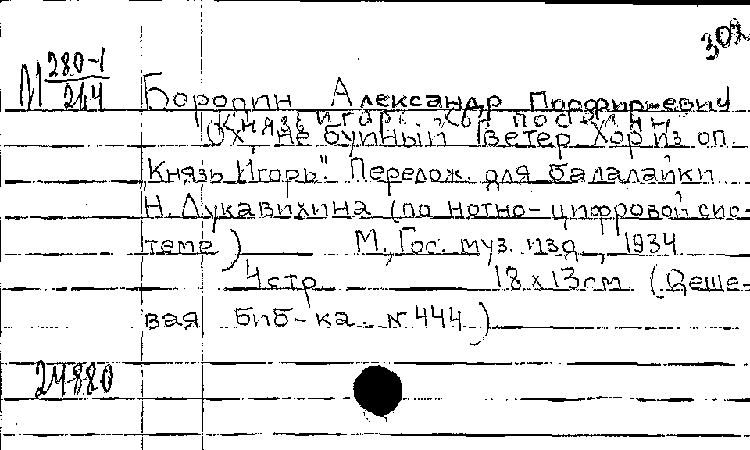 302
М 280-1/244
Бородин Александр Порфирьевич
Князь Игорь. Хор поселян
"Ох, не буйный ветер. Хор из оп.
"Князь Игорь". Перелож. для балалайки
Н. Лукавихина (по нотно-цифровой сис-
теме) М., Гос. муз. изд., 1934
4 стр 18 х 13 см (Деше-
вая биб-ка. № 444)
24880